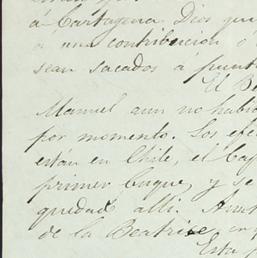 a Cartagena Dios qui
a una contribucion o
sean sacados a punt
El Be
Manuel aun no habia
por momento. Los efec
están en Chile, el Cap
primer buque, y se
quedad alli.
de la Beatrice
Esta